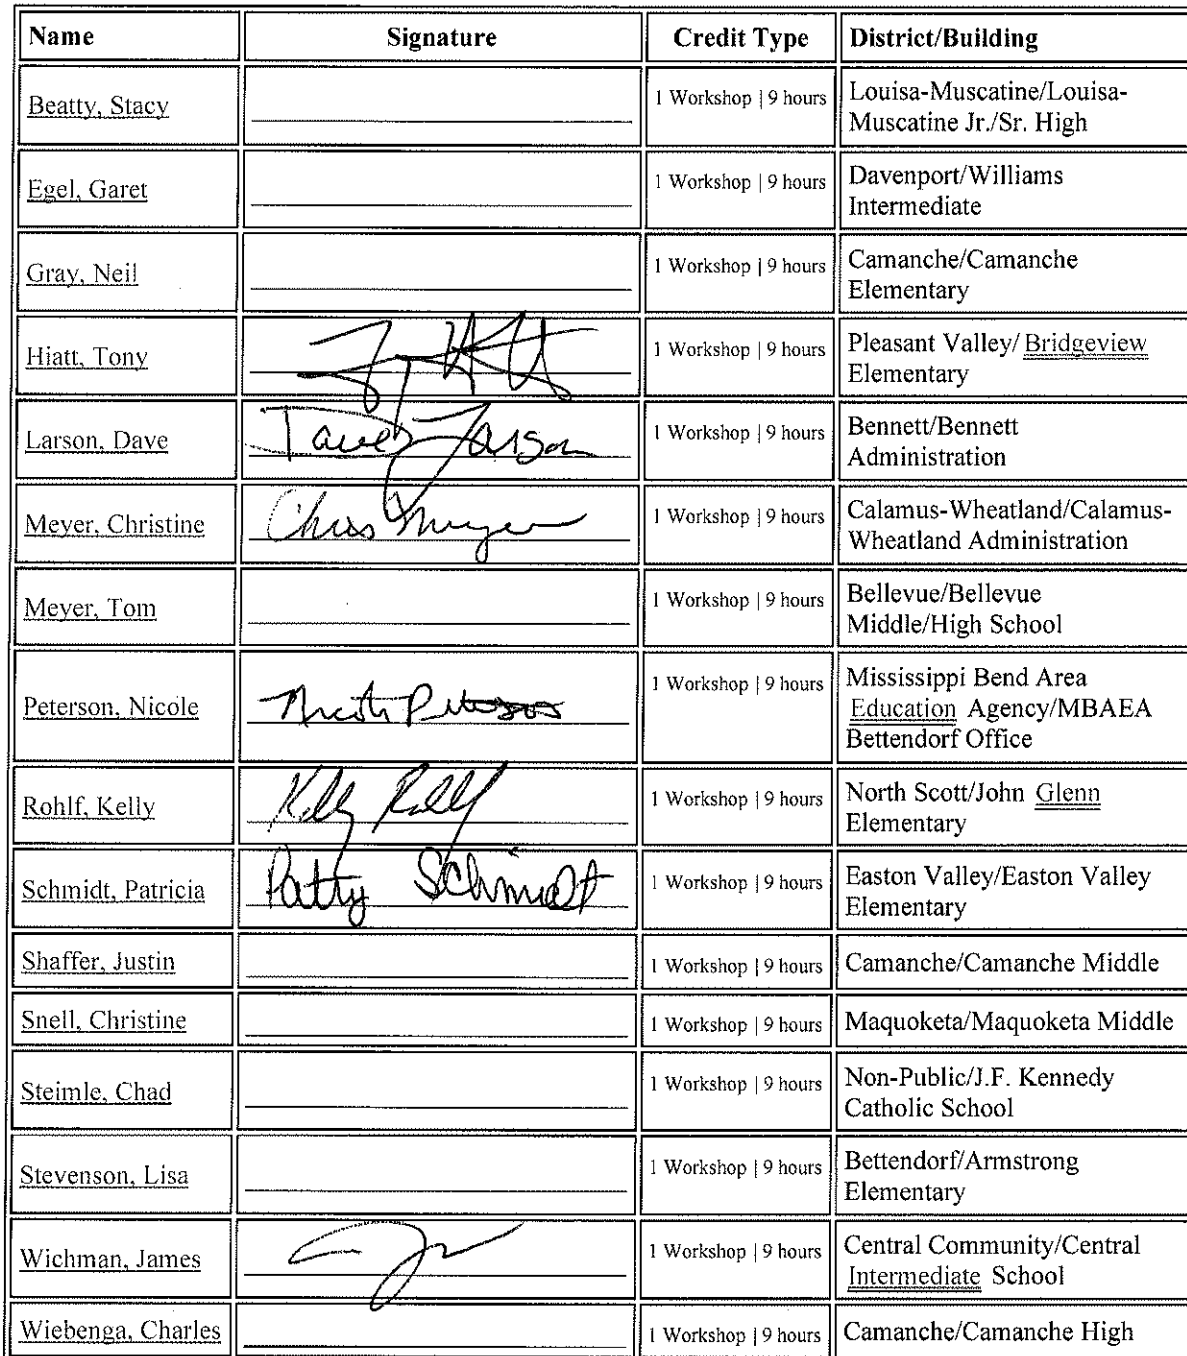 Name Signature Credit Type District/Building
Beatty, Stacy 1 Workshop | 9 hours Louisa-Muscatine/Louisa-
Muscatine Jr./Sr. High
Egel, Garet 1 Workshop | 9 hours Davenport/Williams
Intermediate
Gray, Neil 1 Workshop | 9 hours Camanche/Camanche
Elementary
Hiatt, Tony 1 Workshop | 9 hours Pleasant Valley/ Bridgeview
Elementary
Larson, Dave Dave Larson 1 Workshop | 9 hours Bennett/Bennett
Administration
Meyer, Christine Chris Meyer 1 Workshop | 9 hours Calamus-Wheatland/Calamus-
Wheatland Administration
Meyer, Tom 1 Workshop | 9 hours Bellevue/Bellevue
Middle/High School
Peterson, Nicole Nicole Peterson 1 Workshop | 9 hours Mississippi Bend Area
Education Agency/MBAEA
Bettendorf Office
Rohlf, Kelly Kelly Rohlf 1 Workshop | 9 hours North Scott/John Glenn
Elementary
Schmidt, Patricia Patty Schmidt 1 Workshop | 9 hours Easton Valley/Easton Valley
Elementary
Shaffer, Justin 1 Workshop | 9 hours Camanche/Camanche Middle
Snell, Christine 1 Workshop | 9 hours Maquoketa/Maquoketa Middle
Steimle, Chad 1 Workshop | 9 hours Non-Public/J.F. Kennedy
Catholic School
Stevenson, Lisa 1 Workshop | 9 hours Bettendorf/Armstrong
Elementary
Wichman, James 1 Workshop | 9 hours Central Community/Central
Intermediate School
Wiebenga, Charles 1 Workshop | 9 hours Camanche/Camanche High